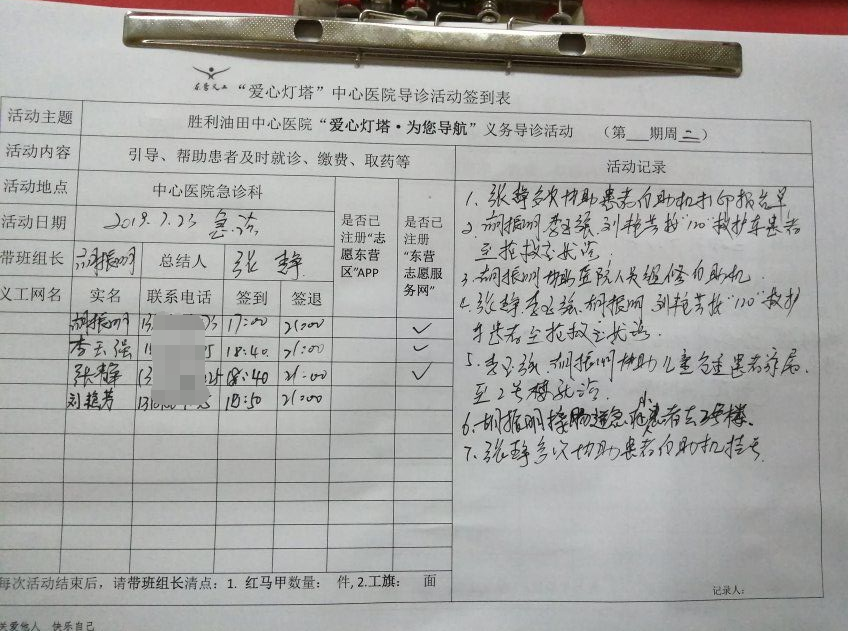 东营义工
“爱心灯塔”中心医院导诊活动签到表
活动主题 胜利油田中心医院“爱心灯塔·为您导航”义务导诊活动 （第 期周二）
活动内容 引导、帮助患者及时就诊、缴费、取药等 活动记录
活动地点 中心医院急诊科 是否已注册“志愿东营区”APP 是否已注册“东营志愿服务网”
活动日期 2019.7.23 急诊
带班组长 胡振明 总结人 张静
义工网名 实名 联系电话 签到 签退
胡振明 17:00 21:00 ✓
李玉强 18:40 21:00 ✓
张静 18:40 21:00 ✓
刘艳芳 18:50 21:00
1、张静多次协助患者自助机打印报告单
2、胡振明 李玉强、刘艳芳接“120”救护车患者
至抢救室就诊；
3、胡振明协助医院人员维修自助机
4、张静 李玉强、胡振明 刘艳芳接“120”救护
车患者至抢救室就诊。
5、李玉强、胡振明协助儿童 患者家属
至2号楼就诊
6、胡振明 急 患者去 号楼。
7、张静多次协助患者自助机挂号
每次活动结束后，请带班组长清点：1. 红马甲数量： 件，2.工旗： 面
记录人：
关爱他人 快乐自己